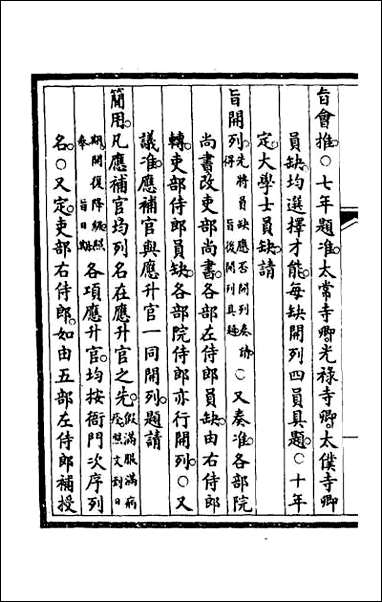 旨會推○七年題准太常寺卿光祿寺卿太僕寺卿
員缺均選擇才能每缺開列四員具題○十年
定大學士員缺請
旨開列先將員缺應否開列奏請得旨後開列具題○又奏准各部院
尚書改吏部尚書各部左侍郎員缺由右侍郎
轉吏部侍郎員缺各部院侍郎亦行開列○又
議准應補官與應升官一同開列題請
簡用凡應補官均列名在應升官之先假滿服滿病痊照文到日
期開復降級照奉旨日期各項應升官均按衙門次序列
名○又定吏部右侍郎如由五部左侍郎補授